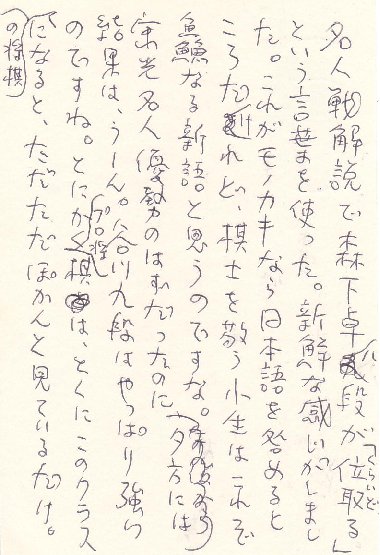 名人戦解説で森下卓八段が「位取る」
くらいど
という言葉を使った。新鮮な感じがしまし
た。これがモノカキなら日本語を咎めると
ころだけれど、棋士を敬う小生はこれぞ
鱻なる新語。と思うのですな。夕方には
名人優勢のはずだったのに
結果は、うーん。谷川九段はやっぱり強い
のですね。とにかくプロ将棋は、とくにこのクラス
の将棋になると、ただただぽかんと見ているだけ。